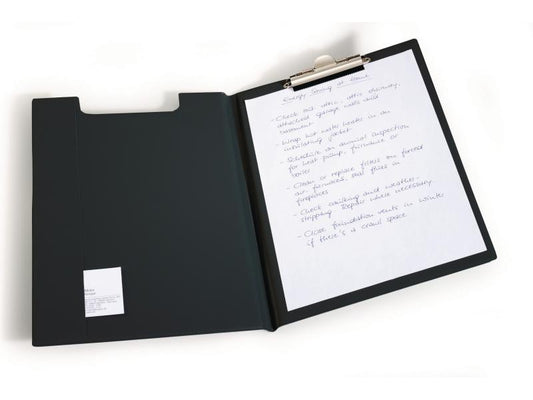 Energy Saving at Home
- Check out attic, attic chimney,
attached garage walls and
basement
- Wrap hot water heater in an
insulating jacket
- Schedule an annual inspection
for heat pump, furnance or
boiler
- Clean or replace filters on forced
air furnaces, seal flues in
fireplaces
- Check caulking and weather
stripping. Repair where necessary
- Close foundation vents in winter
if there's a crawl space